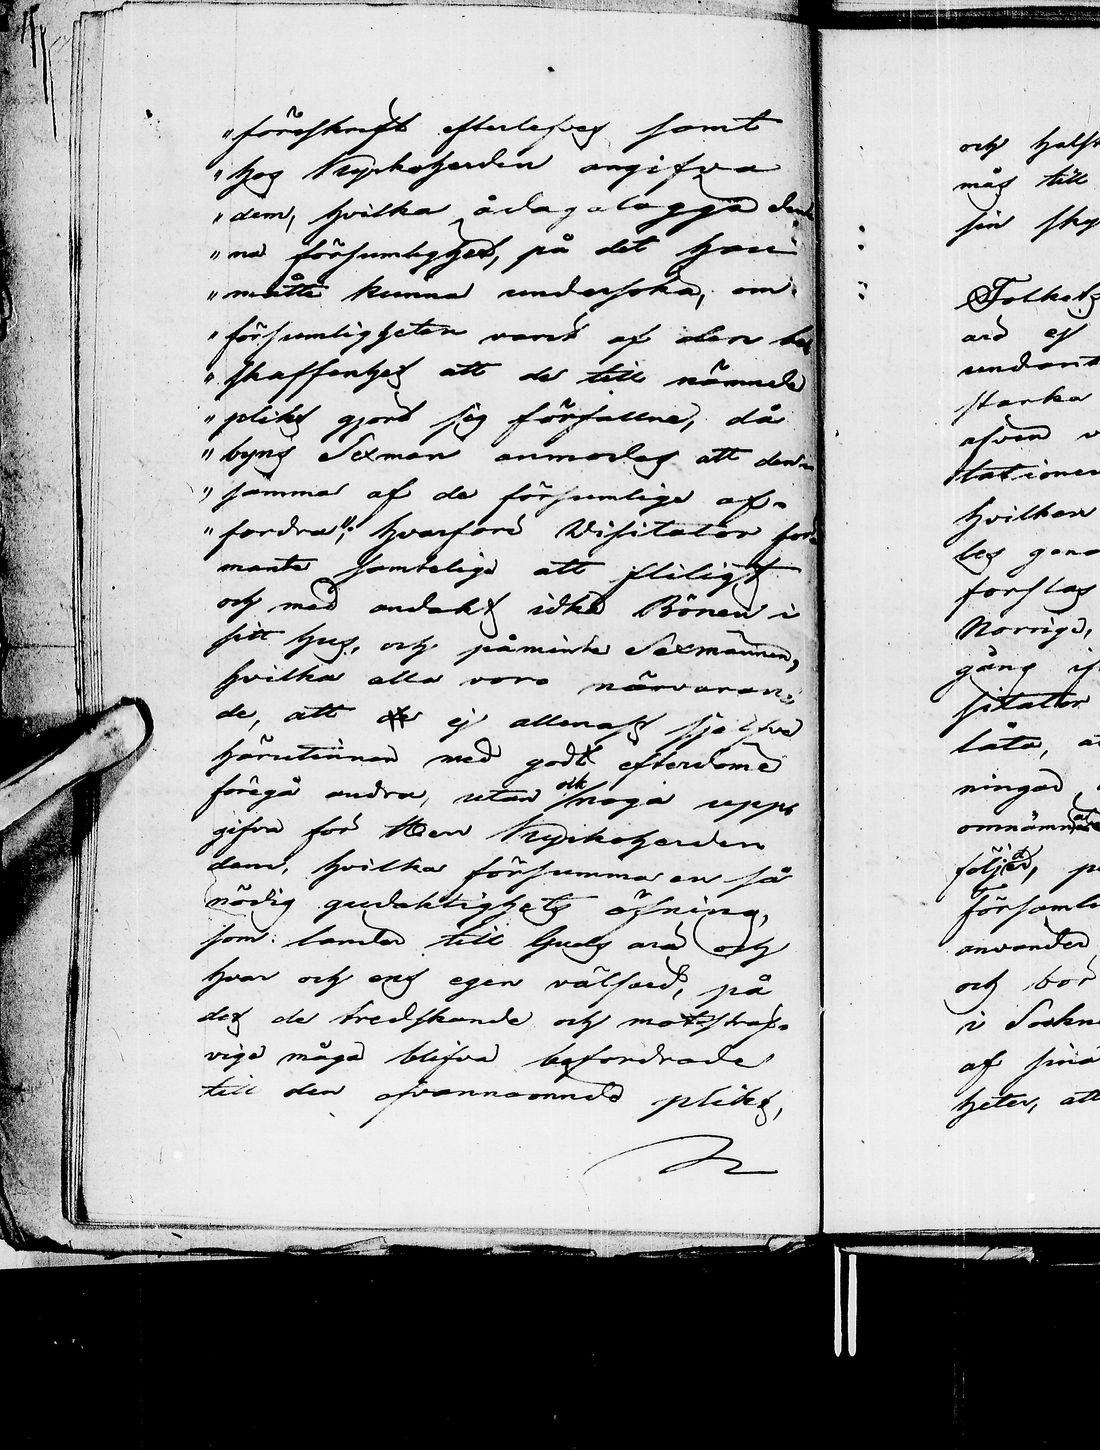 "föreskrift efterlefves samt
"hos Kyrkoherden angifva
"dem, hvilka ådagalägga den
"na försumlighet, på det han
"måtte kunna undersöka, om
"försumligheten varit af den be
"skaffenhet att de till nämnde
"plikt gjort sig förfallne, då
"byns Sexman anmodas att den
"samma af de försumlige af-
"fordra"; hvarföre Visitator för
mante samtelige att flitigt
och med andakt idka Bönen i
sitt hus, och påminte Sexmännen,
hvilka alla voro närvaran-
de, att de ej allenast sjelfva
härutinnan med godt efterdöme
föregå andra, utan ock noga upp-
gifva för Herr Kyrkoherden
dem, hvilka försumma en så
nödig gudaktighets öfning,
som länder till Guds ära och
hvar och ens egen välfärd, på
det de tredskande och motsträf-
vige måga blifva befordrade
till den ofvannämnde plikt,
och
mås till
sin
Folkets
and ej
undant
starka
äfven v
tationen
hvilken
les geno
förslag
Norrige,
gång
sitator
låta, a
ningad
omnämn
följer, p
Församl
använder
och bör
i Sockn
af sina
heter, att